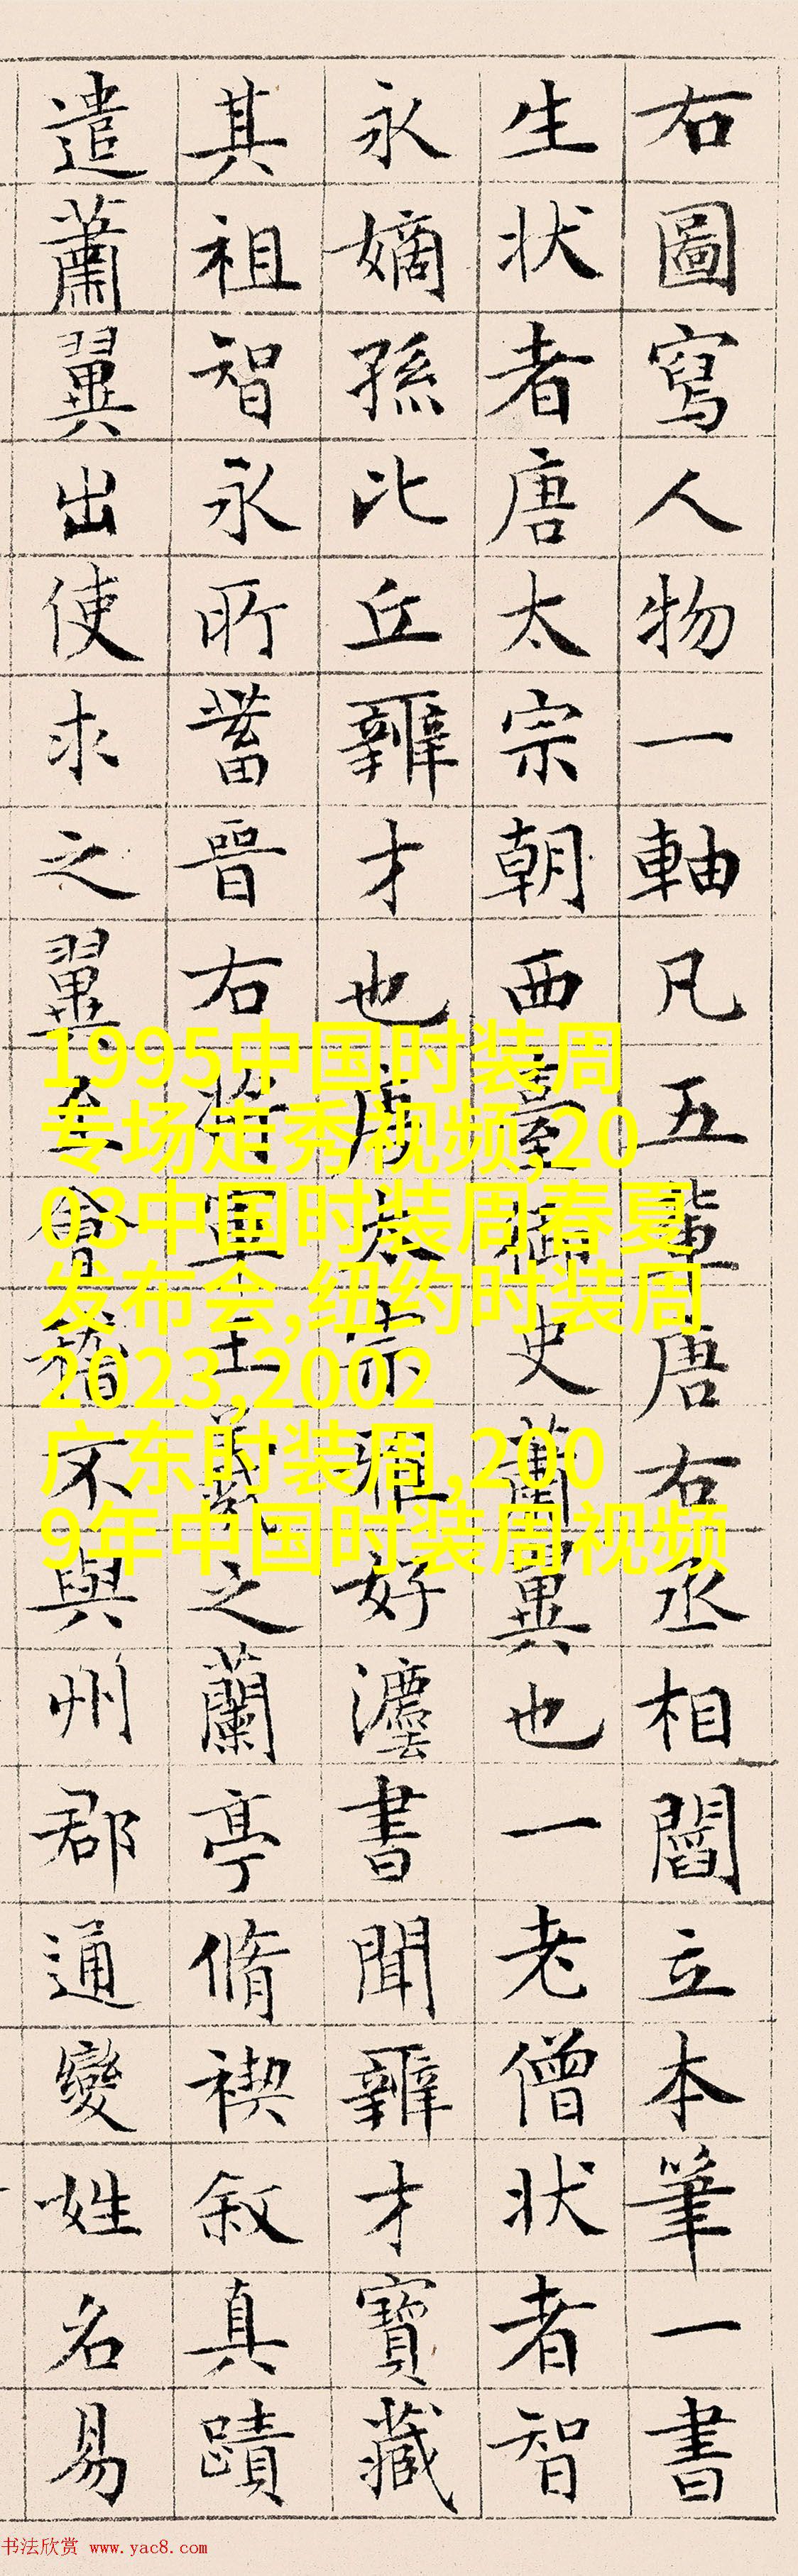 右圖寫人物一軸凡五輩唐右丞相閻立本筆一書
生状者唐太宗朝西臺御史蕭翼也一老僧状者智
永嫡孫比丘辯才也唐太宗雅好灋書聞辯才寶藏
其祖智永所蓄晉右将軍王羲之蘭亭脩禊叙真蹟
遣蕭翼出使求之翼至會稽不與州郡通變姓名易
1995中国时装周
专场走秀视频,20
03中国时装周春夏
发布会,纽约时装周
2023,2002
广东时装周,200
9年中国时装周视频
书法欣赏 www.yac8.com